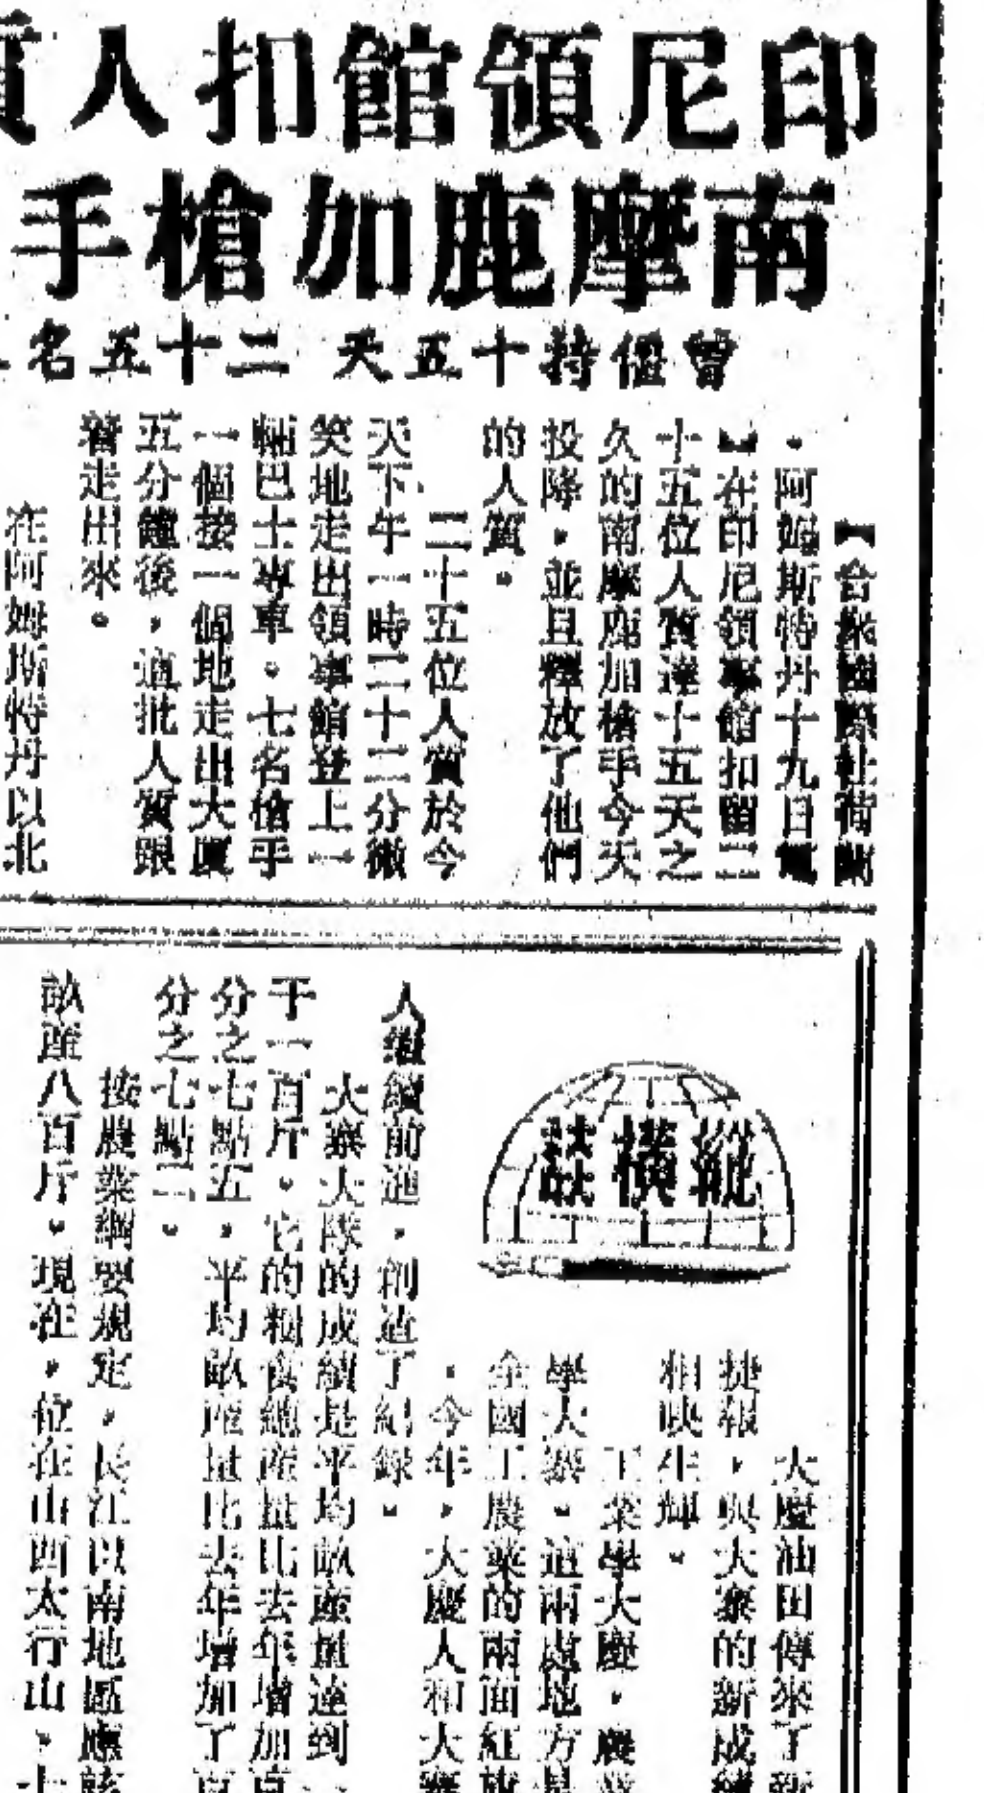 印尼領館扣人質
南摩鹿加槍手
曾僵持十五天 二十五名
【合衆國際社荷蘭
・阿姆斯特丹十九日電
】在印尼領事館扣留二
十五位人質達十五天之
久的南摩鹿加槍手今天
投降，並且釋放了他們
的人質。
二十五位人質於今
天下午一時二十三分微
笑地走出領事館登上一
輛巴士專車。七名槍手
一個接一個地走出大廈
五分鐘後，這批人質跟
着走出來。
在阿姆斯特丹以北
縱橫談
大慶油田傳來了新
捷報，與大寨的新成績
相映生輝。
工業學大慶，農業
學大寨。這兩處地方是
全國工農業的兩面紅旗
。今年，大慶人和大寨
人繼續前進，創造了紀錄。
大寨大隊的成績是平均畝產量達到一
千一百斤。它的糧食總產量比去年增加百
分之七點五，平均畝產量比去年增加了百
分之七點二。
按農業綱要規定，長江以南地區應該
畝產八百斤。現在，位在山西太行山，